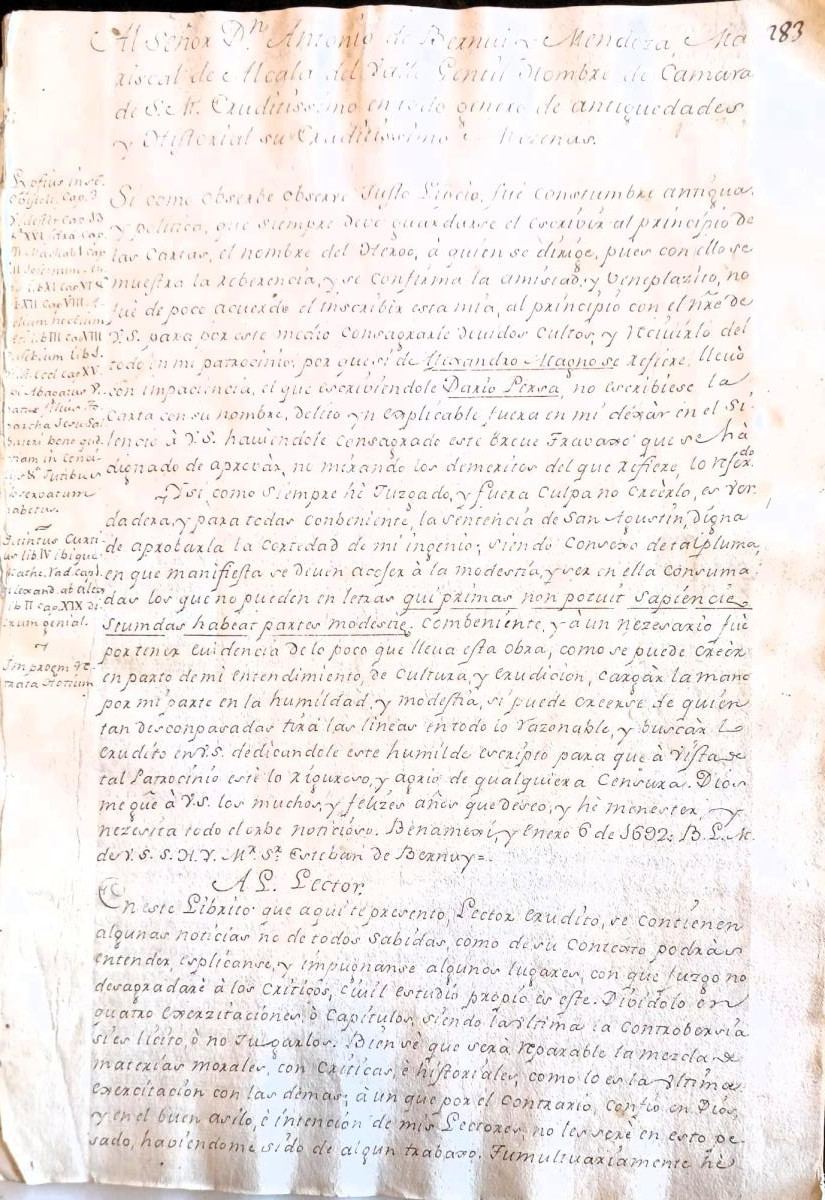 283
Al Señor Dn Antonio de Bernui y Mendoza, Ma
riscal de Alcala del Valle Gentil Hombre de Camara
de S. M. Eruditissimo en todo genero de antiguedades
y Historial su Eruditissimo Mezenas.
Si como observe observé Justo Lipcio, fué constumbre antigua,
y politica, que siempre deve guardarse el escrivir al principio de
las Cartas, el nombre del Heroe, à quien se dirige, pues con ello se
muestra la reberencia, y se confirma la amistad, y beneplazito, no
fué de poco acuerdo el inscribir esta mia, al principio con el nre de
V.S. para por este medio consagrarle devidos cultos, y recivirlo del
todo en mi patrocinio; por que si de Alexandro Magno se refiere, llevò
con impaciencia, el que escriviendole Dario Persa, no escribiese la
Carta con su nombre, delito yn explicable fuera en mi dexàr en el Si
lencio à V.S. haviendole consagrado este breve travaxo que se hà
dignado de aprovàr, no mirando los demeritos del que refiere, lo referdo
Y si como siempre hè Juzgado, y fuera culpa no creèrlo, es ver
dadera, y para todas conbeniente, la sentencia de San Agustin, digna
de aprobarla la cortedad de mi ingenio; siendo consexo de tal pluma,
en que manifiesta se deven acojer à la modestia, y ser en ella consuma
das los que no pueden en letras qui primas non potuit sapiencie
secumdas habeat partes modestie. Combeniente, y à un nezesario fuè
por tener evidencia de lo poco que lleva esta obra, como se puede creèr
en parto de mi entendimiento, de cultura, y erudicion, cargàr la mano
por mi parte en la humildad, y modestia, si puede creerse de quien
tan desconpasadas tira las lineas en todo lo razonable, y buscàr lo
erudito en V.S. dedicandole este humilde escripto para que à vista de
tal Patrocinio estè lo riguroso, y agrio de qualquiera Censura. Dios
me gue à V.S. los muchos, y felizes años que deseo, y hè menester, y
nezesita todo el orbe noticioso. Benamexi, y Enero 6 de 1692: B.L.M.
de V.S. S.H.Y. Mr Sr Esteban de Bernuy=.
Al Lector.
En este Librito que aqui te presento, Lector erudito, se contienen
algunas noticias no de todos sabidas, como de su contexto podràs
entender, esplicanse, y impugnanse algunos lugares, con que juzgo no
desagradarè à los Criticos, cuiil estudio propio es este. Dibidolo en
quatro exerzitaciones, ò Capitulos, siendo la ultima la controbersia
si es licito, ò no Jugarlos. Bien sè que serà reparable la mezcla de
materias morales, con Criticas, è historiales; como lo es la ultima
exercitacion con las demas; à un que por el contrario, confio en Dios,
y en el buen asilo, è intencion de mis Lectores, no les serè en esto pe
sado, haviendome sido de algun trabaxo. Tumultuariamente hè
Quintus Curti
us lib IV
Alexand. ab Alex
lib II cap. XIX di
erum genial.